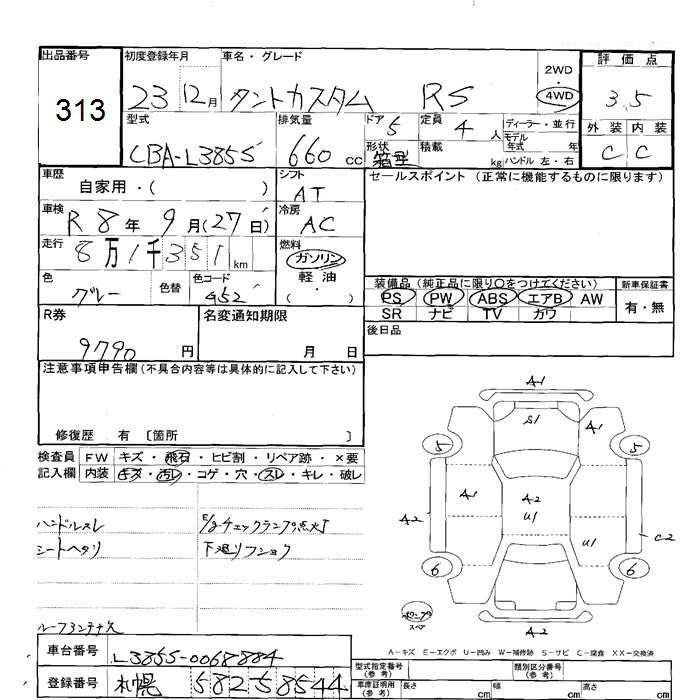 出品番号 初度登録年月 車名・グレード 2WD・4WD 評価点
313 23 12月 タントカスタム RS 3.5
型式 排気量 ドア 5 定員 4人 ディーラー・並行 外装 内装
CBA-L385S 660cc 形状 箱型 積載 kg モデル年式 年 ハンドル 左・右 C C
車歴 自家用・( ) シフト AT セールスポイント(正常に機能するものに限ります)
車検 R8年9月(27日) 冷房 AC
走行 8万1千351km 燃料 ガソリン 軽油・( )
色 グレー 色替 色コード 452 装備品(純正品に限り○をつけてください) 新車保証書
PS PW ABS エアB AW 有・無
SR ナビ TV カワ
R券 9790円 名変通知期限 月 日 後日品
注意事項申告欄(不具合内容等は具体的に記入して下さい)
修復歴 有 〔箇所 〕
検査員記入欄 FW キズ・飛石・ヒビ割・リペア跡・×要
内装 キズ・汚レ・コゲ・穴・スレ・キレ・破レ
ハンドルスレ E/gチェックランプ点灯
シートヘタリ 下廻りフショク
ルーフコンテナ欠
A1
S1 A1
5 5
A1 A2 U1
A2 U1 C2
6 6
スペア
A2
A-キズ E-エクボ U-凹み W-補修跡 S-サビ C-腐食 XX-交換済
車台番号 L385S-0068884
登録番号 札幌 582 5 8544
型式指定番号(参考) 類別区分番号(参考)
車庫証明用(参考) 長さ cm 幅 cm 高さ cm